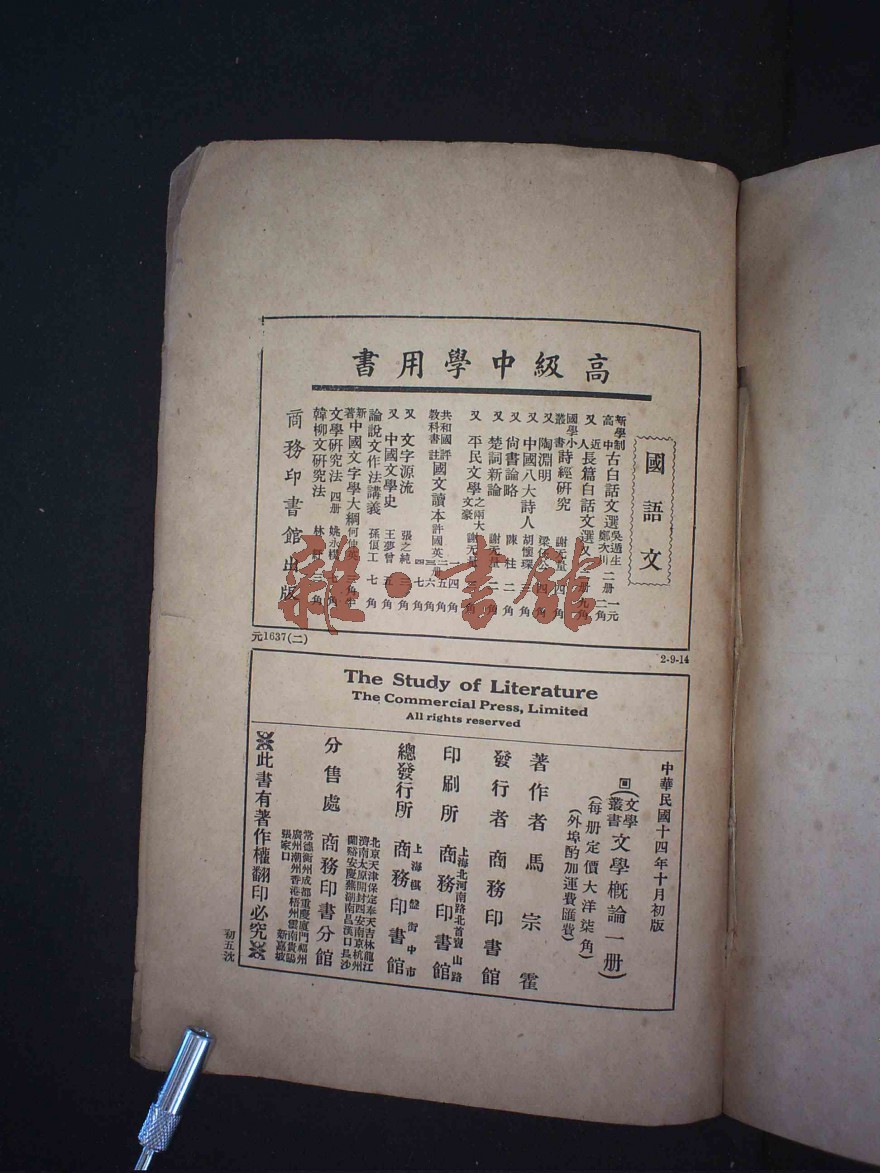 高級中學用書
國語文
新學制高中古白話文選 吳遁生 鄭次川 二册 一元二角
又 近人長篇白話文選 又 二册 九角
國學小叢書 詩經研究 謝无量 四角
又 陶淵明 梁任公 四角
又 中國八大詩人 胡懷琛 三角
又 尙書論略 陳柱 二角
又 楚詞新論 謝无量 二角
又 平民文學之兩大文豪 謝无量
共和國教科書 評註國文讀本 許國英
又 文字源流 張之純 三角
又 中國文學史 王夢曾 五角
論說文作法講義 孫俍工 七角
新著中國文字學大綱 何仲英
文學研究法 四册 姚永樸 七角
韓柳文研究法 林 三角
商務印書館出版
元1637(二)
2-9-14
The Study of Literature
The Commercial Press, Limited
All rights reserved
中華民國十四年十月初版
(文學叢書 文學概論一册)
(每册定價大洋柒角)
(外埠酌加運費匯費)
著作者 馬宗霍
發行者 商務印書館
印刷所 上海北河南路北首寶山路 商務印書館
總發行所 上海棋盤街中市 商務印書館
分售處 商務印書分館
北京天津保定奉天吉林龍江
濟南太原開封西安南京杭州
蘭谿安慶蕪湖南昌漢口長沙
常德衡州成都重慶廈門福州
廣州潮州香港梧州雲南貴陽
張家口 新嘉坡
此書有著作權翻印必究
初五沈
雜·書館